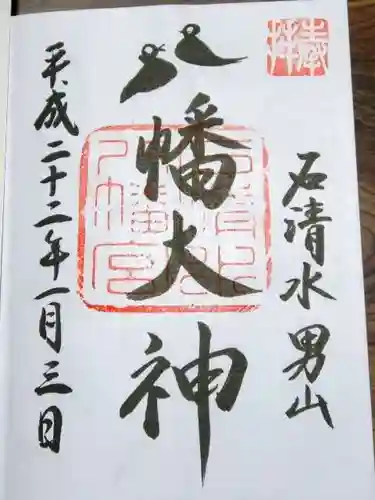 奉拝
石清水男山
八幡大神
石清水八幡宮
平成二十二年一月三日